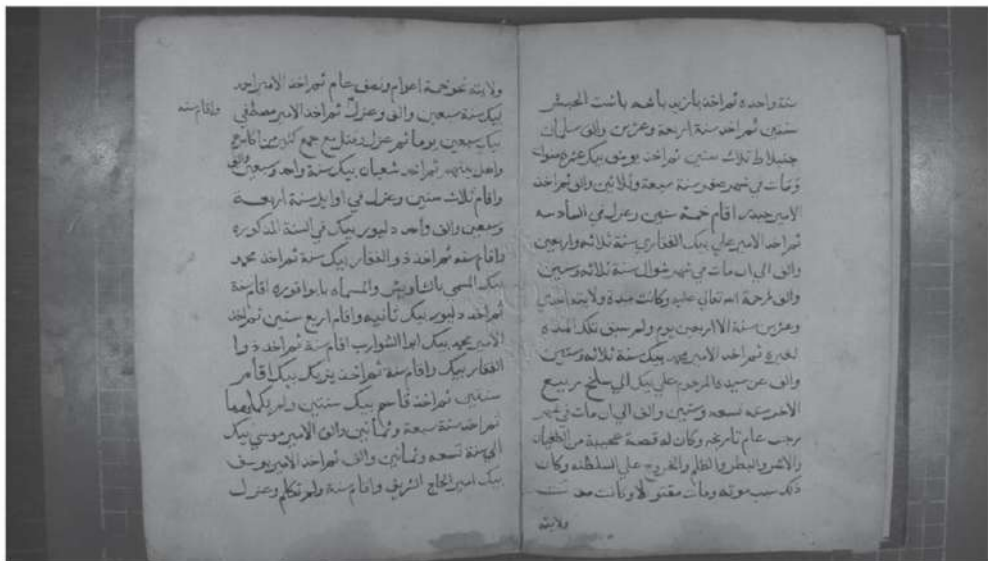 سنة واحده ثم اخذ بازيد باغه باشت الحبش
سنتين ثم اخذ سنة اربعة وعشرين والف سليمان
جنبلاط ثلاث سنين ثم اخذ يوسف بيك عشرة سنوات
ومات في شهر صفر سنة سبعة وثلاثين والف ثم اخذ
الامير حيدر اقام خمسة سنين وعزل في السادسه
ثم اخذ الامير علي بيك الفقاري سنة ثلاثه واربعين
والف الي ان مات في شهر شوال سنة ثلاثه وستين
والف فرحمة الله تعالي عليه وكانت مدة ولايته احدي
وعشرين سنة الا اربعين يوم ولم سبق تلك المده
لغيره ثم اخذ الامير محمد بيك سنة ثلاثه وستين
والف عن سيده المرحوم علي بيك الي سلخ ربيع
الاخر سنة تسعه وستين والف الي ان مات في شهر
رجب عام تاريخه وكان له قصة عجيبة من الطغيان
والاشر والبطر والظلم والخروج علي السلطنه وكان
ذلك سبب موته ومات مقتولا وكانت مدت
ولايته
ولايته نحو خمسة اعوام ونصف عام ثم اخذ الامير احمد
بيك سنة سبعين والف وعزل ثم اخذ الامير مصطفي
واقام سنه
بيك سبعين يوما ثم عزل وقتل مع جمع كثير من
ثم اخذ شعبان بيك سنة واحد وسبعين والف
واقام ثلاث سنين وعزل في اوايل سنة اربعة
وسبعين والف واخذ دليور بيك في السنة المذكوره
واقام سنه ثم اخذ ذو الفقار بيك سنة ثم اخذ محمد
بيك المسمي بالشاويش والمسماه بابو اقوره اقام سنة
ثم اخذ دليور بيك ثانيه واقام اربع سنين ثم اخذ
الامير محمد بيك ابو الشوارب اقام سنة ثم اخذ ذوا
الفقار بيك واقام سنة ثم اخذ يزبك بيك اقام
سنتين ثم اخذ قاسم بيك سنتين ولم يكملهما
ثم اخذ سنة سبعة وثمانين والف الامير موسي بيك
الي سنة تسعه وثمانين والف ثم اخذ الامير يوسف
بيك امير الحاج الشريف واقام سنة ولم تكلم وعزل